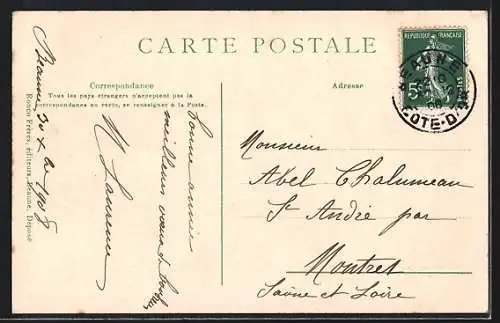 CARTE POSTALE
Correspondance
Tous les pays étrangers n'acceptent pas la
correspondance au recto, se renseigner à la Poste.
Adresse
REPUBLIQUE FRANÇAISE
POSTES
5c
BEAUNE
COTE-D'OR
08
Beaune 30 Xbre 1908
Bonne année
meilleurs vœux de
M Laurence
Monsieur
Abel Chalumeau
St André par
Montret
Saône et Loire
Ronco Frères, éditeurs, Beaune, Déposé